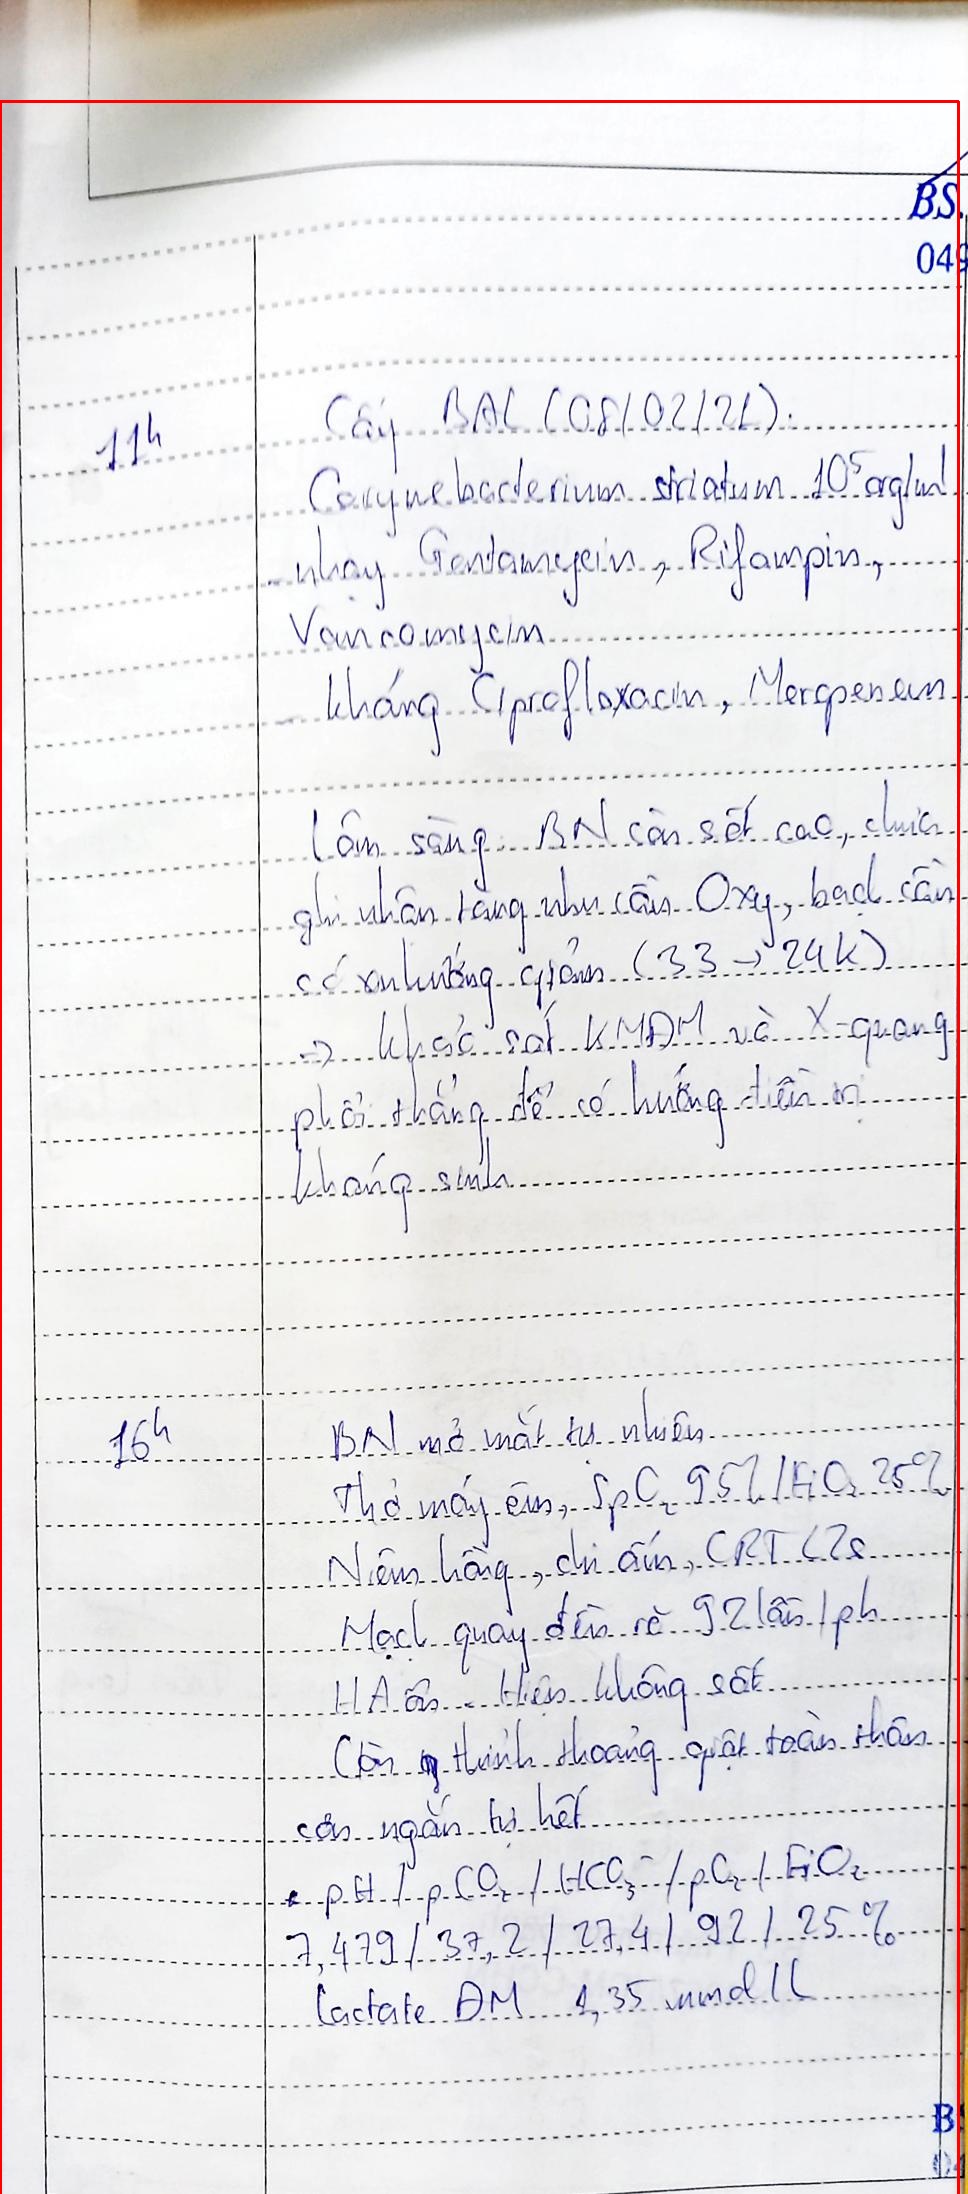 BS.
049
11h
Cấy BAL (08/02/21):
Corynebacterium striatum 10⁵ org/ml
nhạy Gentamycin, Rifampin,
Vancomycin
kháng Ciprofloxacin, Meropenem
Lâm sàng: BN còn sốt cao, chưa
ghi nhận tăng nhu cầu Oxy, bạch cầu
có xu hướng giảm (33 → 24k)
=> khảo sát KMĐM và X-quang
phổi thẳng để có hướng điều trị
kháng sinh
16h
BN mở mắt tự nhiên
Thở máy êm, SpO₂ 95% / FiO₂ 25%
Niêm hồng, chi ấm, CRT <2s
Mạch quay đều rõ 92 lần/ph
HA ổn. Hiện không sốt
Còn thỉnh thoảng giật toàn thân
cơn ngắn tự hết
pH / pCO₂ / HCO₃⁻ / pO₂ / FiO₂
7,479 / 37,2 / 27,4 / 92 / 25%
Lactate ĐM 1,35 mmol/L
BS
04